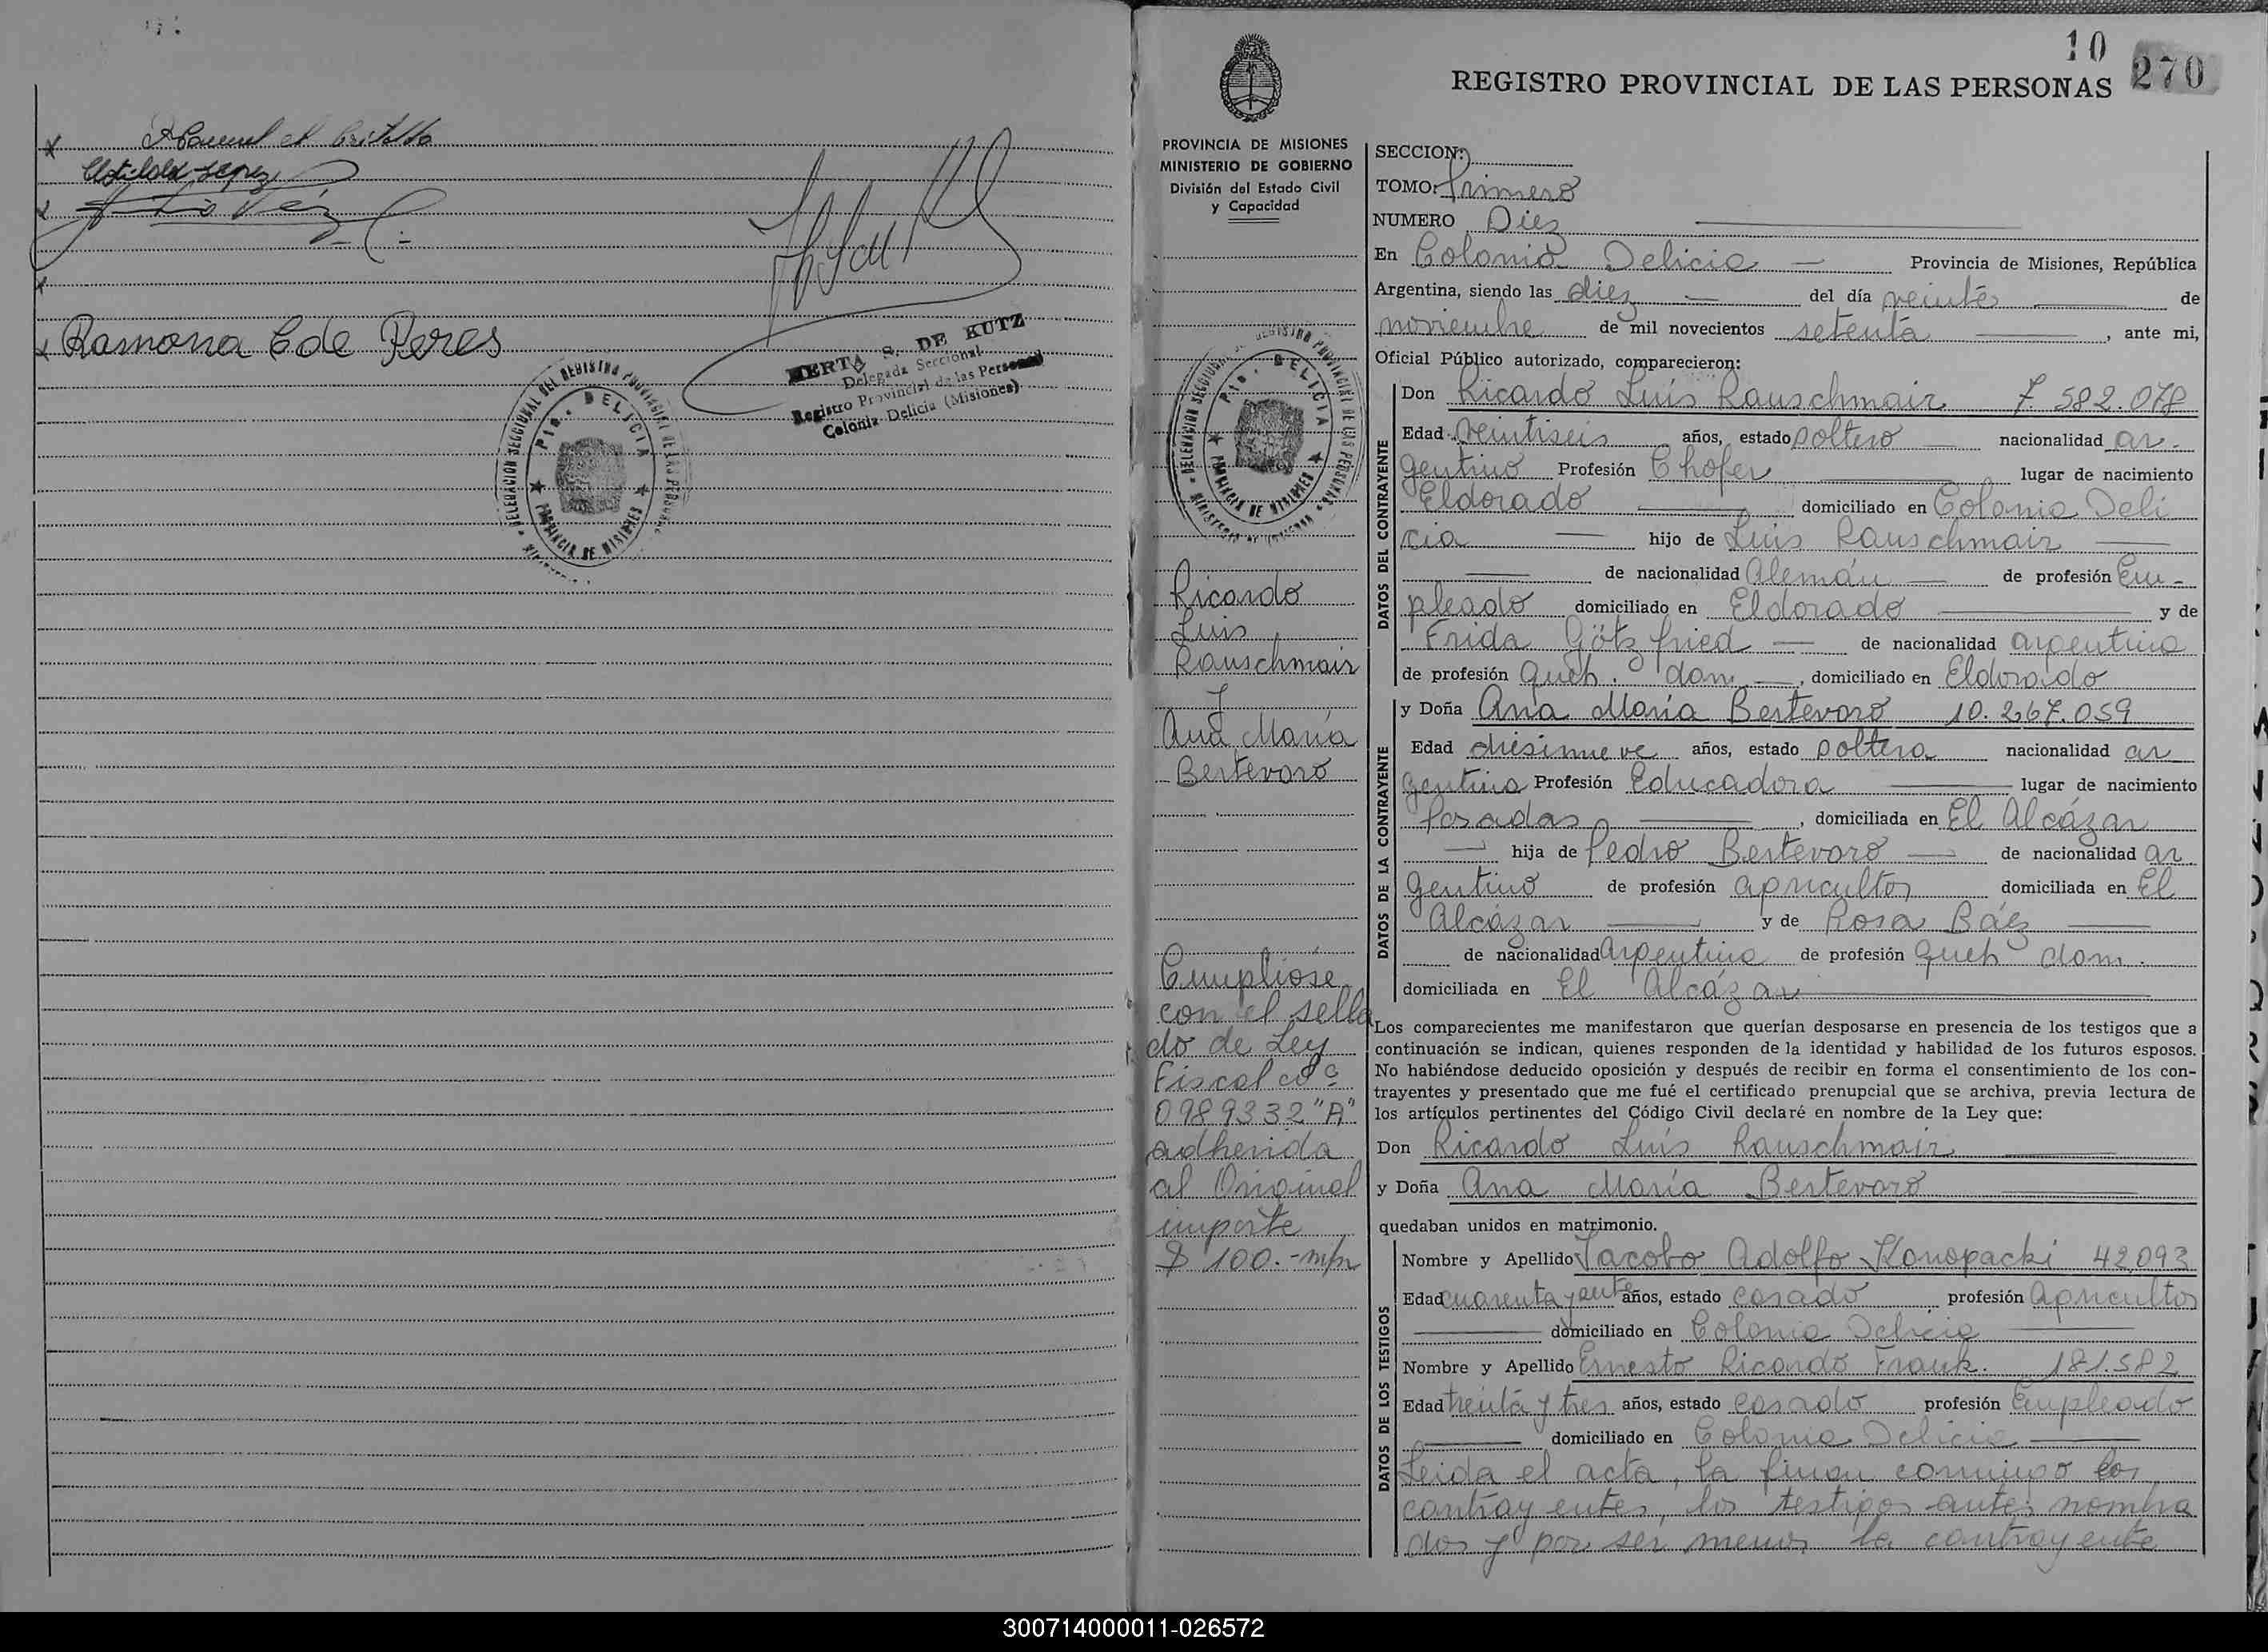 Manuel A Britllo
Clotilda Lopez
Ramona C de Peres
HERTA S. DE KUTZ
Delegada Seccional
Registro Provincial de las Personas
Colonia Delicia (Misiones)
DELEGACION SECCIONAL DEL REGISTRO PROVINCIAL DE LAS PERSONAS
Pto. DELICIA
PROVINCIA DE MISIONES
10
270
REGISTRO PROVINCIAL DE LAS PERSONAS
PROVINCIA DE MISIONES
MINISTERIO DE GOBIERNO
División del Estado Civil
y Capacidad
DELEGACION SECCIONAL DEL REGISTRO PROVINCIAL DE LAS PERSONAS
Pto. DELICIA
PROVINCIA DE MISIONES
Ricardo
Luis
Rauschmair
y
Ana María
Bertevoro
Cumpliose
con el sella
do de Ley
Fiscal
0989332 "A"
adherida
al Original
importe
$ 100.- m/n
SECCION:
TOMO: Primero
NUMERO Diez
En Colonia Delicia Provincia de Misiones, República
Argentina, siendo las diez del día veinte de
noviembre de mil novecientos setenta, ante mi,
Oficial Público autorizado, comparecieron:
DATOS DEL CONTRAYENTE
Don Ricardo Luis Rauschmair 7.582.078
Edad veintiseis años, estado soltero nacionalidad ar-
gentino Profesión Chofer lugar de nacimiento
Eldorado domiciliado en Colonia Deli
cia hijo de Luis Rauschmair
de nacionalidad Alemán de profesión Em-
pleado domiciliado en Eldorado y de
Frida Götzfried de nacionalidad argentina
de profesión Queh. dom, domiciliado en Eldorado
DATOS DE LA CONTRAYENTE
y Doña Ana María Bertevoro 10.267.059
Edad diesinueve años, estado soltera nacionalidad ar
gentina Profesión Educadora lugar de nacimiento
Posadas, domiciliada en El Alcázar
hija de Pedro Bertevoro de nacionalidad ar
gentino de profesión agricultor domiciliada en El
Alcázar y de Rosa Báez
de nacionalidad Argentina de profesión Queh dom.
domiciliada en El Alcázar
Los comparecientes me manifestaron que querían desposarse en presencia de los testigos que a
continuación se indican, quienes responden de la identidad y habilidad de los futuros esposos.
No habiéndose deducido oposición y después de recibir en forma el consentimiento de los con-
trayentes y presentado que me fué el certificado prenupcial que se archiva, previa lectura de
los artículos pertinentes del Código Civil declaré en nombre de la Ley que:
Don Ricardo Luis Rauschmair
y Doña Ana María Bertevoro
quedaban unidos en matrimonio.
DATOS DE LOS TESTIGOS
Nombre y Apellido Jacobo Adolfo Konopacki 42,093
Edad cuarenta y años, estado casado profesión Agricultor
domiciliado en Colonia Delicia
Nombre y Apellido Ernesto Ricardo Frank. 181.582
Edad treinta y tres años, estado casado profesión Empleado
domiciliado en Colonia Delicia
Leida el acta, la firman conmigo los
contrayentes, los testigos antes nombra
dos y por ser menor la contrayente
300714000011-026572